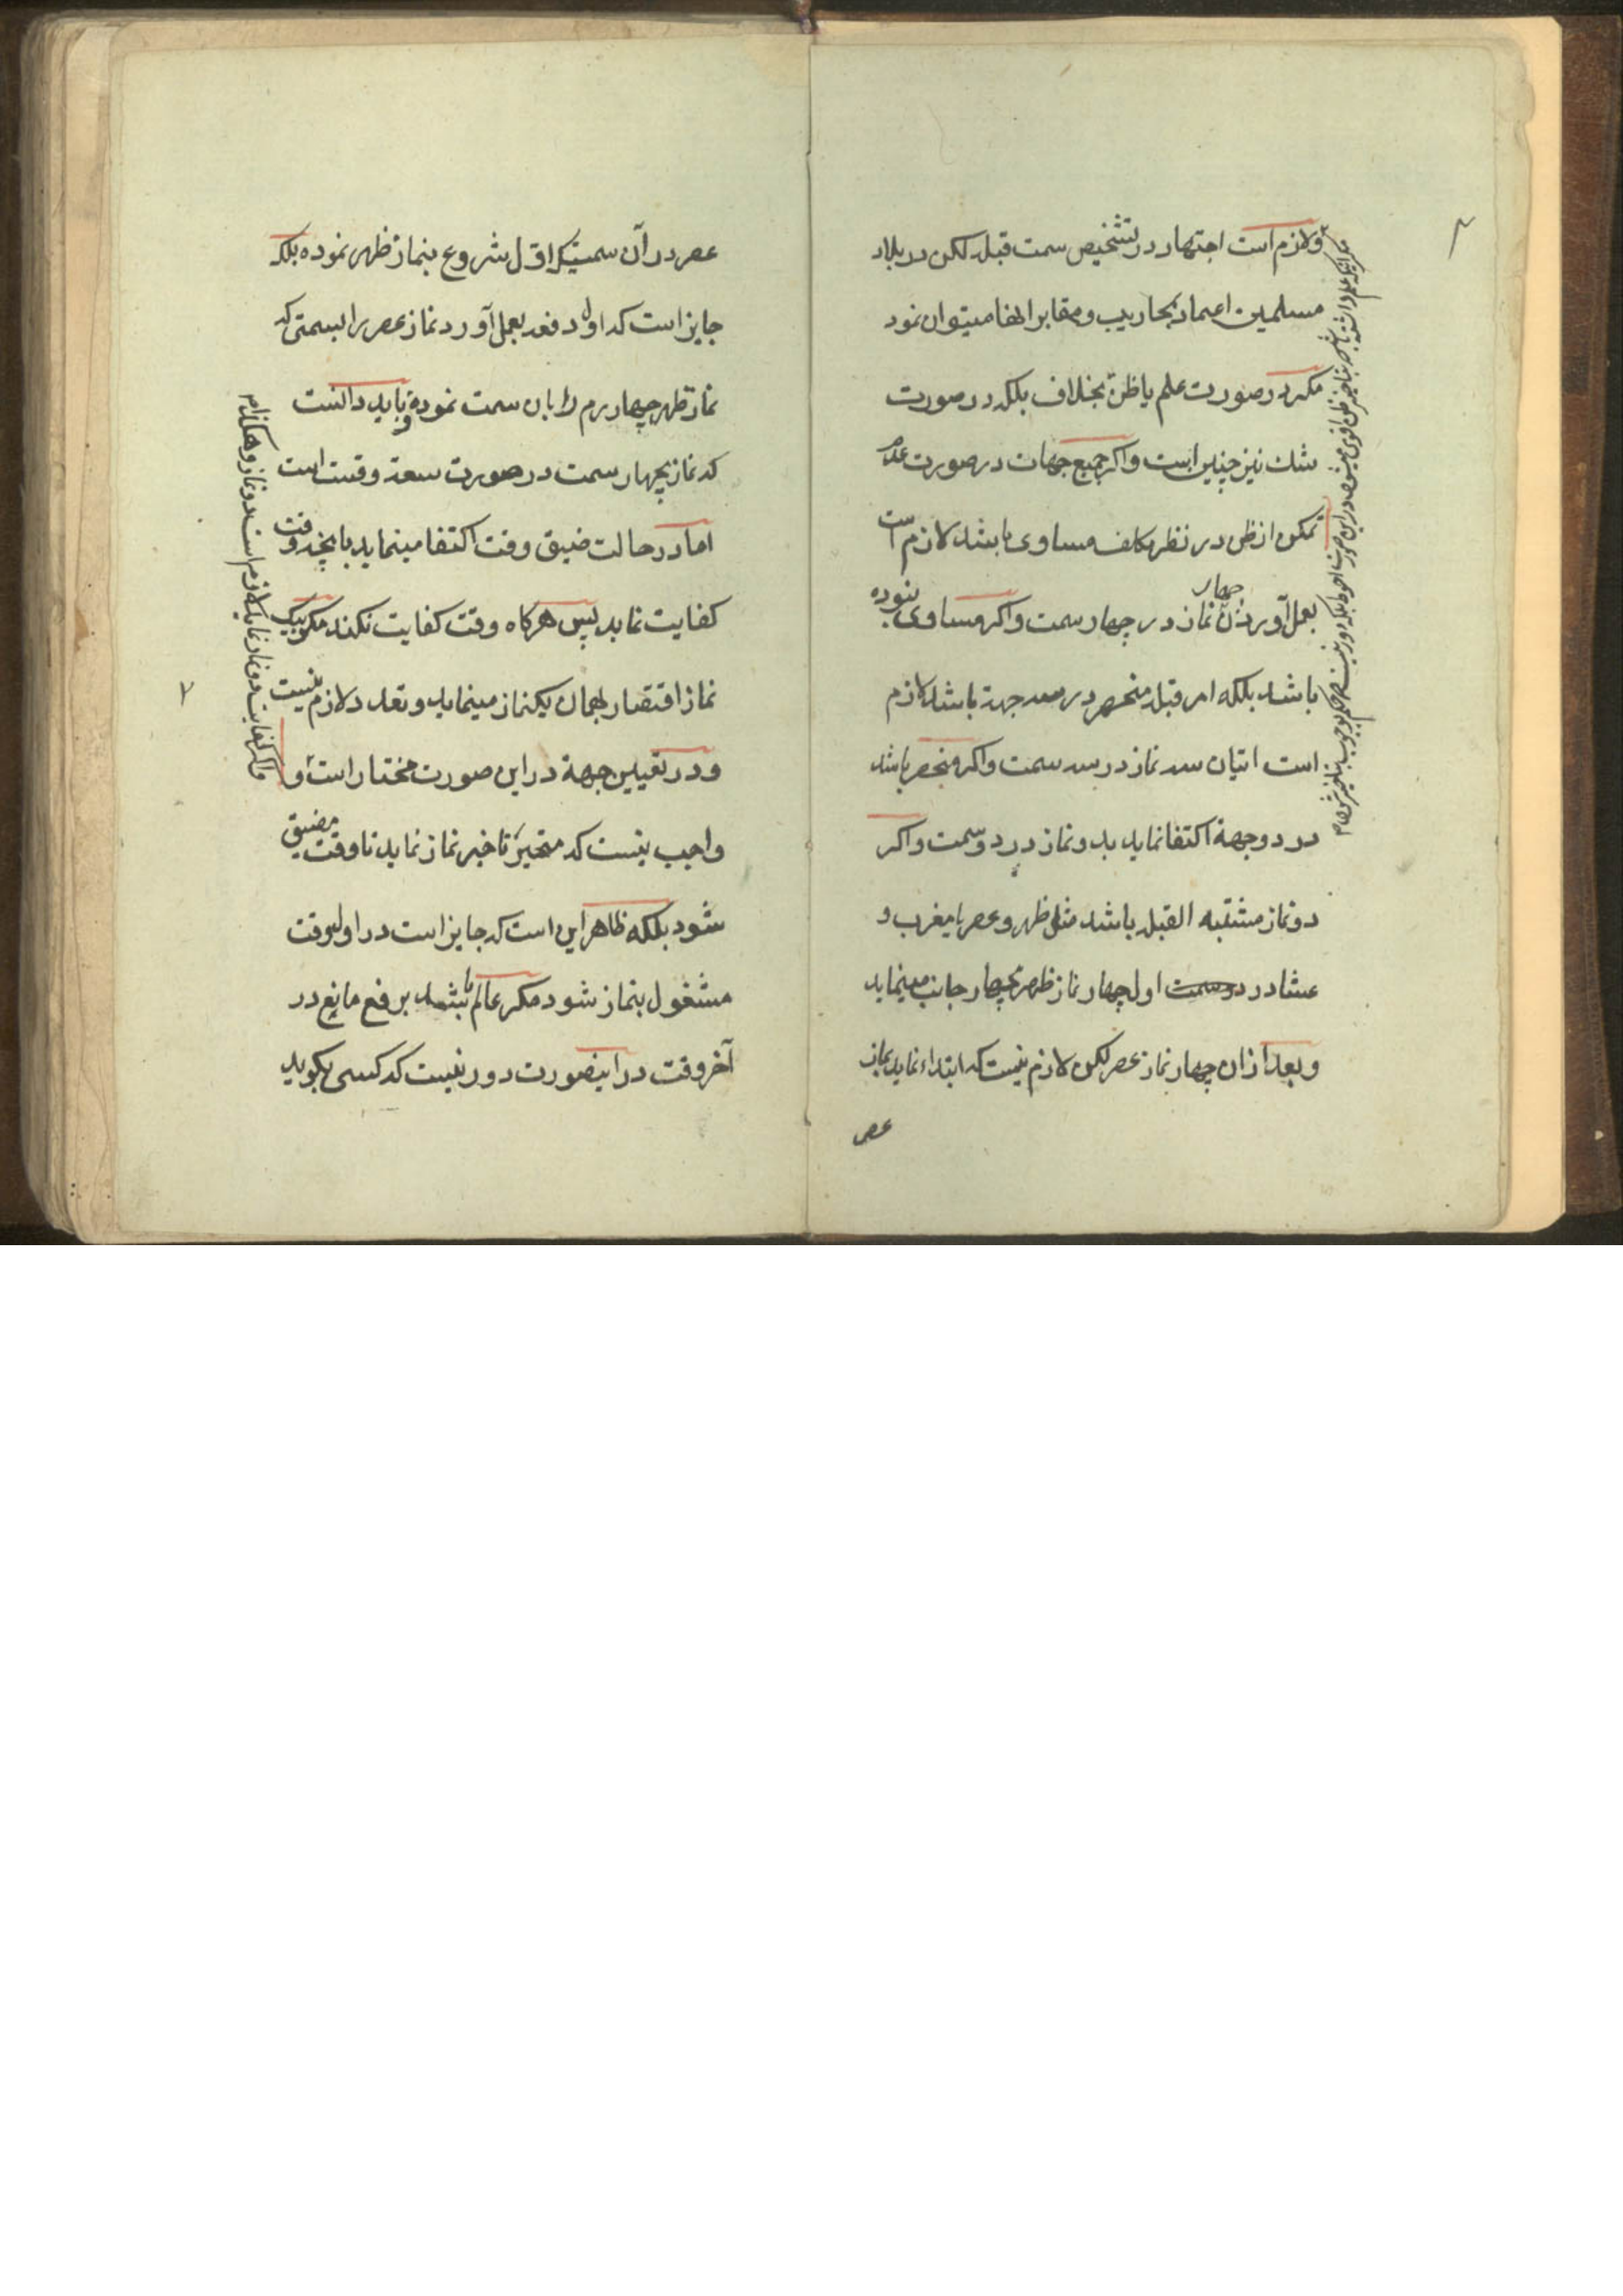 ولازم است اجتهاد در تشخیص سمت قبله لکن در بلاد
مسلمین اعتماد بمحاریب و مقابر انها میتوان نمود
مکر در صورت علم یا ظن بخلاف بلکه در صورت
شک نیز چنین است و اکر جمیع جهات در صورت عدم
تمکن از ظن در نظر مکلف مساوی باشد لازم است
بعمل آوردن چهار نماز در چهار سمت و اکر مساوی نبوده
باشد بلکه امر قبله منحصر در سه جهة باشد لازم
است اتیان سه نماز در سه سمت و اکر منحصر باشد
در دو جهة اکتفا نماید بدو نماز در دو سمت و اکر
دو نماز مشتبه القبله باشد مثل ظهر و عصر یا مغرب و
عشا در دو سمت اول چهار نماز ظهر بچهار جانب مینماید
و بعد از ان چهار نماز عصر لکن لازم نیست که ابتداء نماید بنماز
عصر
عصر در آن سمتیکه اول شروع بنماز ظهر نموده بلکه
جایز است که اول دفعه بعمل آورد نماز عصر را بسمتی که
نماز ظهر چهارم را بان سمت نموده و باید دانست
که نماز بچهار سمت در صورت سعة وقت است
اما در حالت ضیق وقت اکتفا مینماید بانچه وقت
کفایت نماید پس هرکاه وقت کفایت نکند مکر بیک
نماز اقتصار بهمان یکنماز مینماید و تعدد لازم نیست
و در تعیین جهة در این صورت مختار است و
واجب نیست که متحیر تاخیر نماز نماید تا وقت مضیق
شود بلکه ظاهر این است که جایز است در اول وقت
مشغول بنماز شود مکر عالم باشد برفع مانع در
آخر وقت در اینصورت دور نیست که کسی بکوید
و اکر کفایت دو نماز نماید لازم است دو نماز و هکذا م
۲